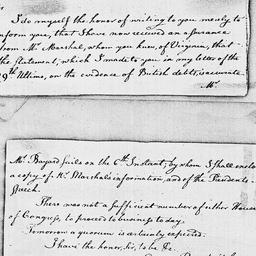 I do myself the honor of writing to you merely to
inform you, that I have now received an assurance
from Mr. Marshal, whom you knew, of Virginia, that
the statement, which I made to you in my letter of the
9th Ultimo, on the evidence of British debts, is accurate.
Mr.
Mr. Bayard sails on the 6th Instant, by whom I shall enclose
a copy of Mr. Marshal's information, and of the President's
Speech.
There was not a sufficient number of either House
of Congress, to proceed to business to day.
Tomorrow a quorum is certainly expected.
I have the honor, Sir, to be &c.